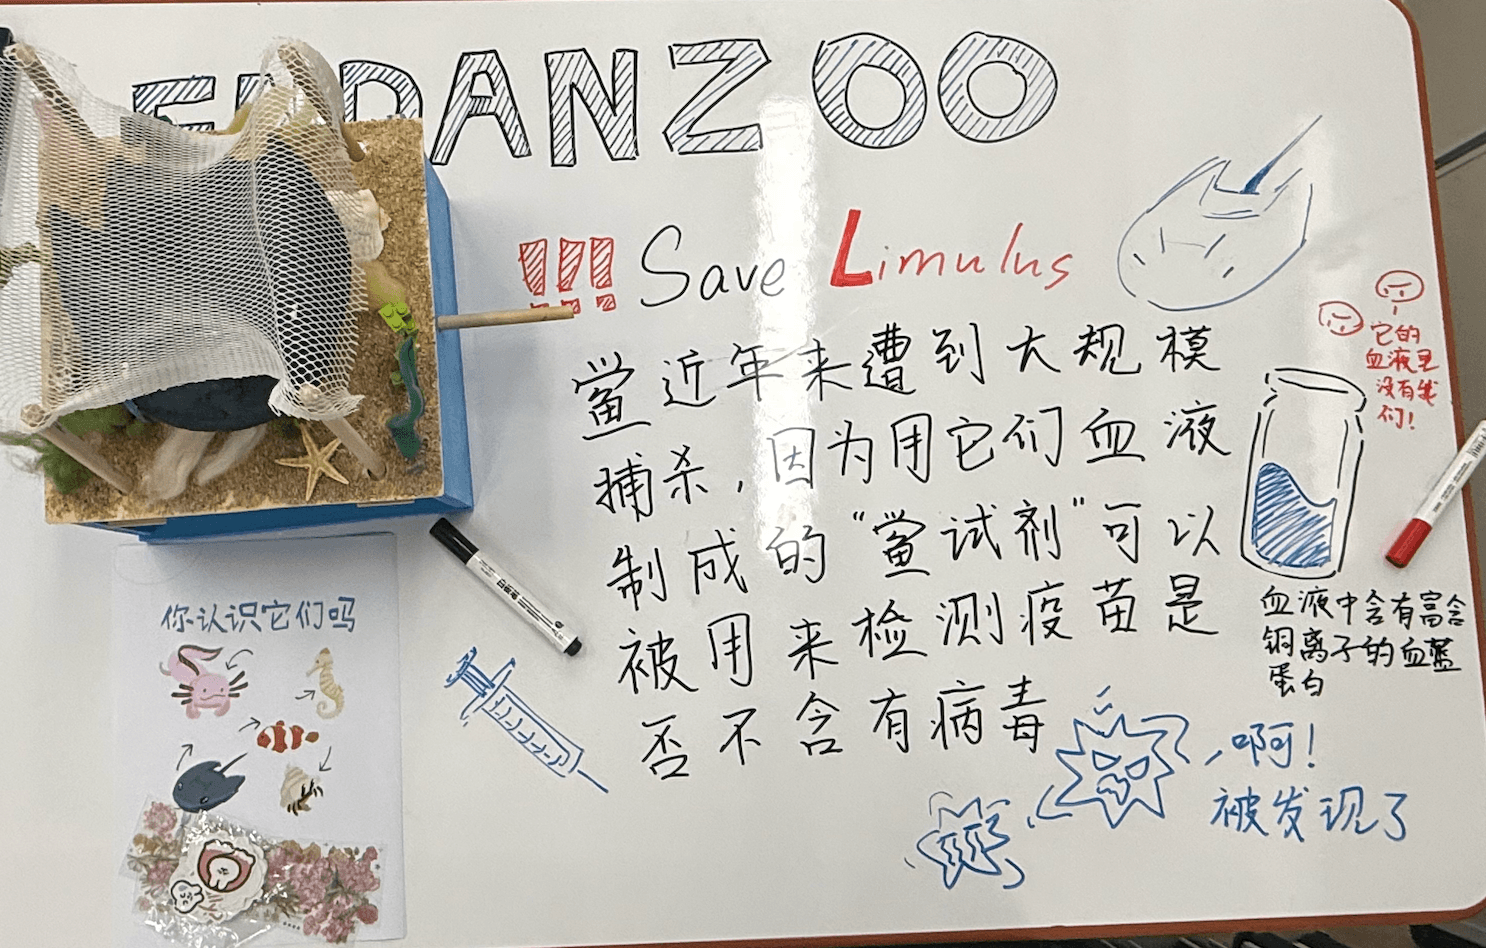 ENDANZOO
!!! Save Limulus
鲎近年来遭到大规模
捕杀，因为用它们血液
制成的“鲎试剂”可以
被用来检测疫苗是
否不含有病毒
它的
血液里
没有我
们!
血液中含有富含
铜离子的血藍
蛋白
啊!
被发现了
你认识它们吗